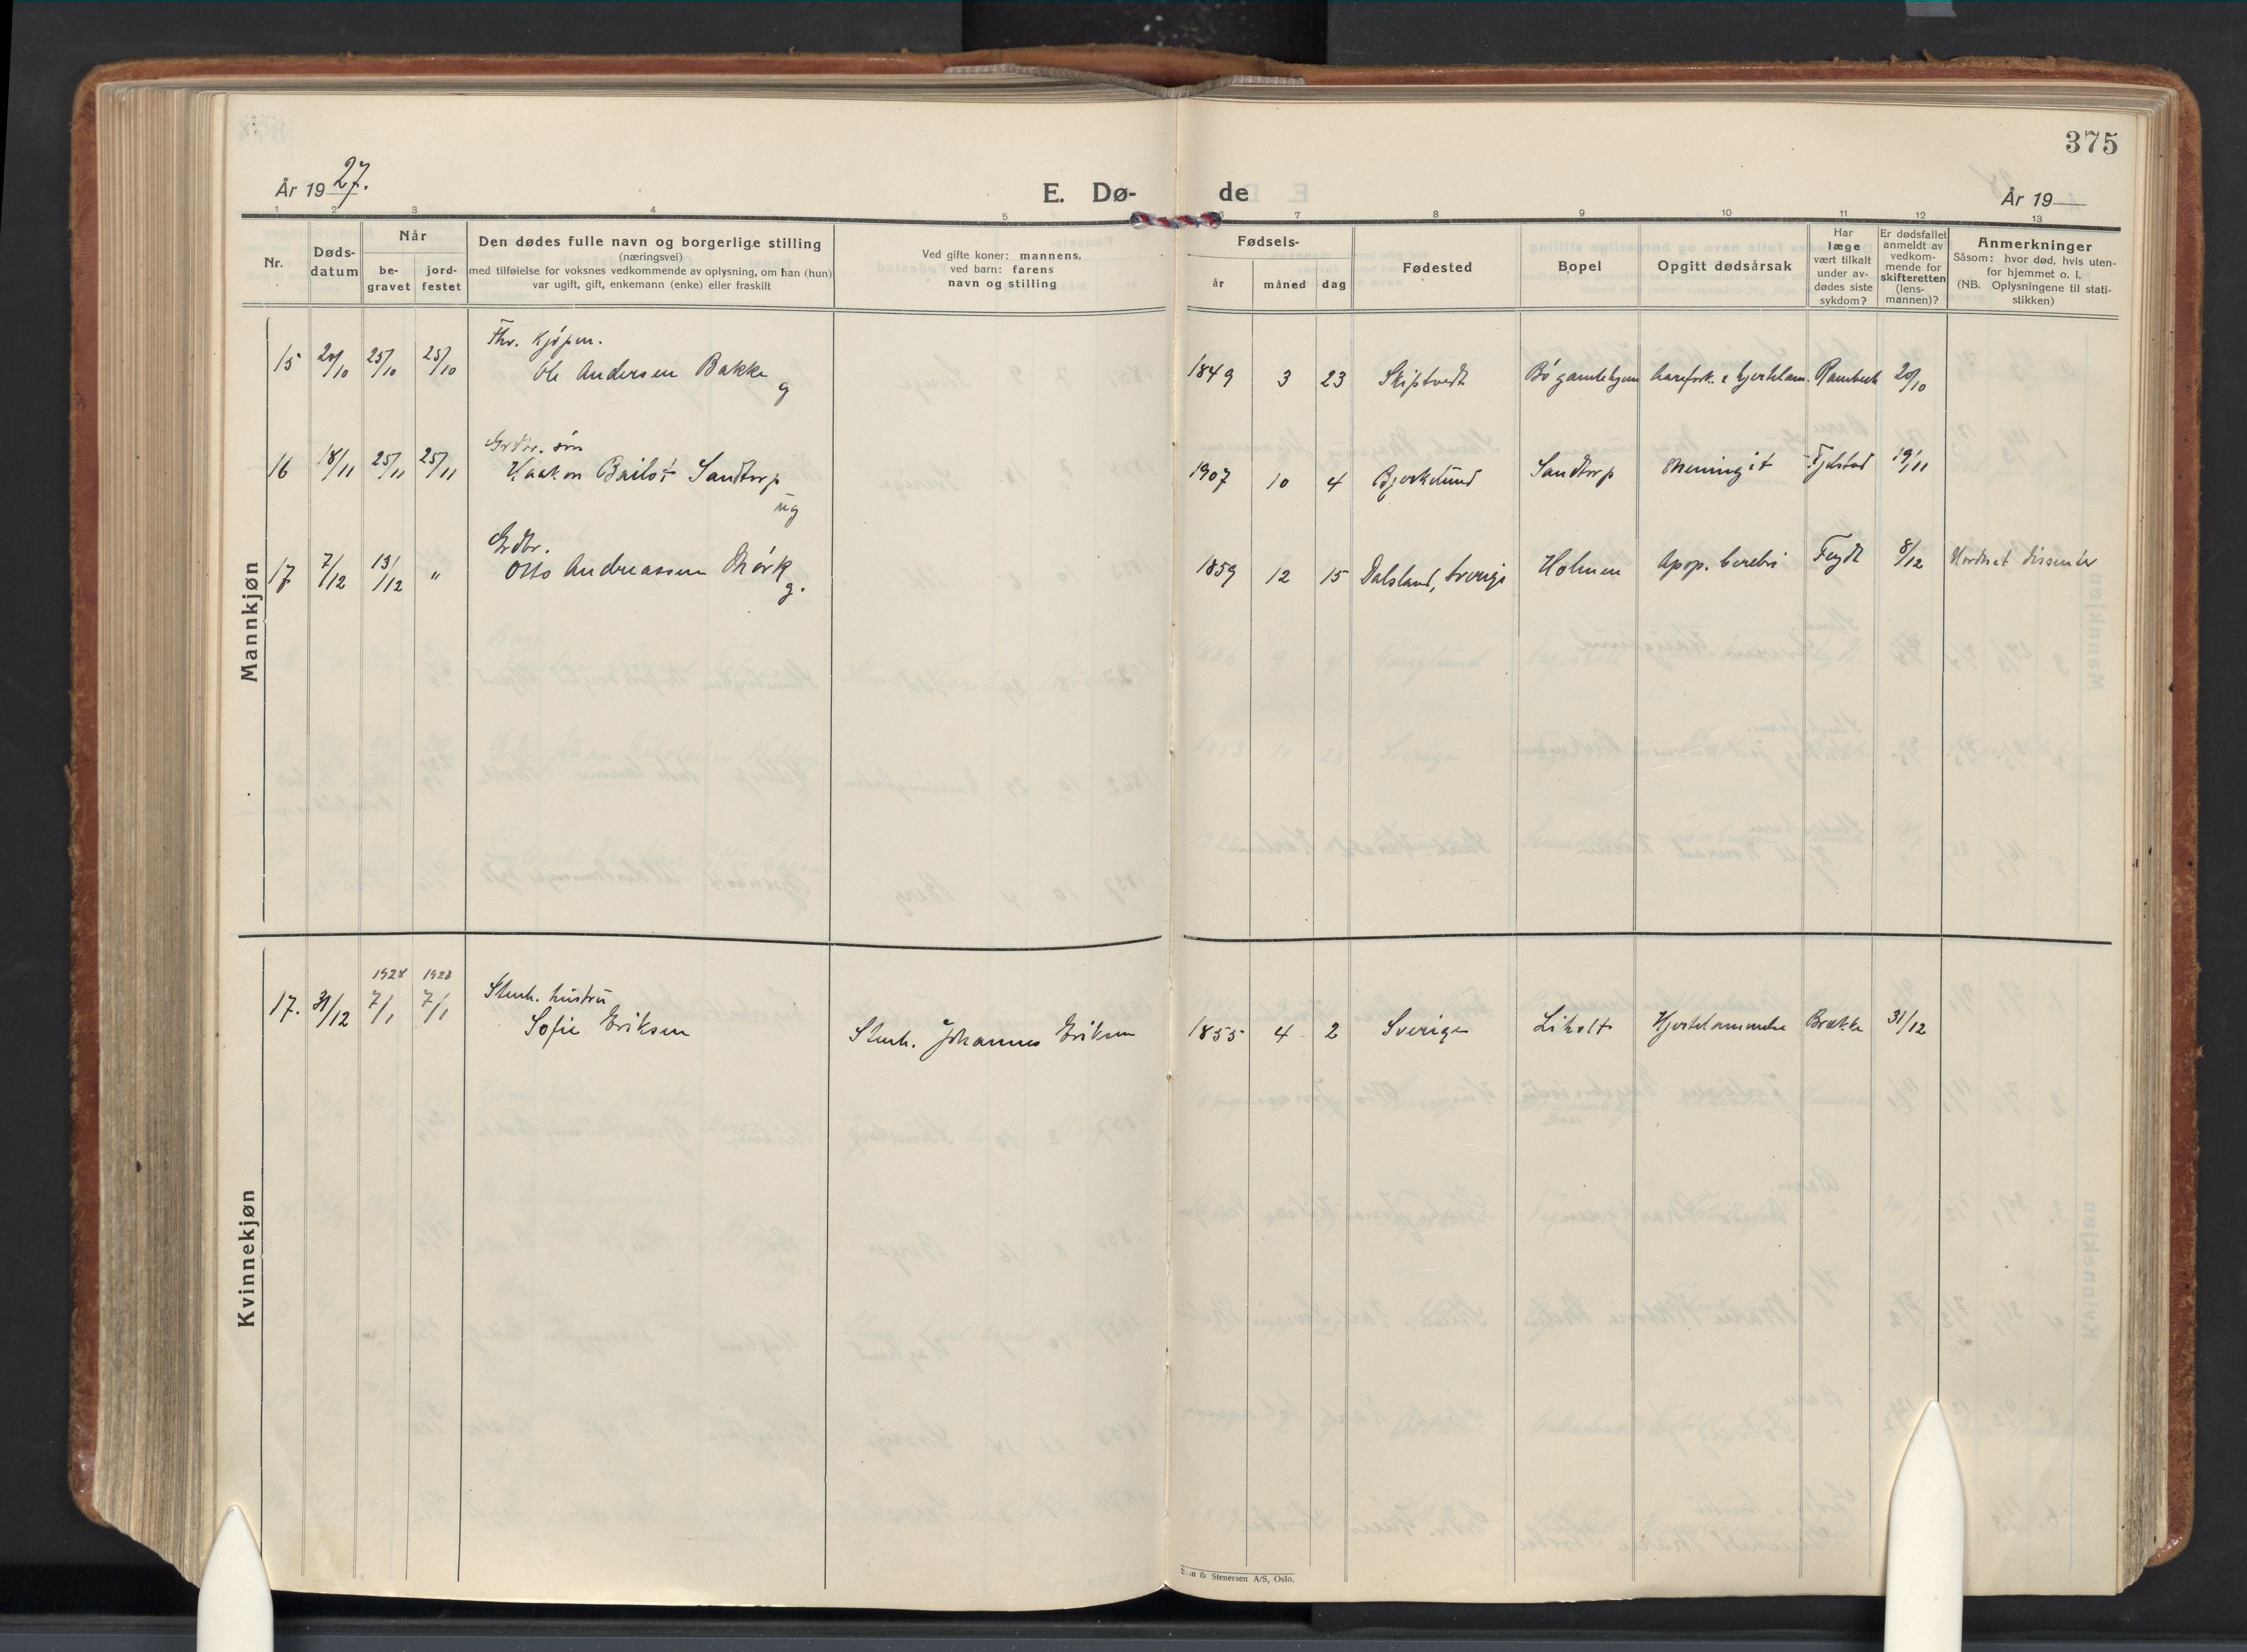 375
År 1927.
E. Dø- de
År 19
1 2 3 4 5 6 7 8 9 10 11 12 13
Nr.
Døds-
datum
Når
be-
gravet
jord-
festet
Den dødes fulle navn og borgerlige stilling
(næringsvei)
med tilføielse for voksnes vedkommende av oplysning, om han (hun)
var ugift, gift, enkemann (enke) eller fraskilt
Ved gifte koner: mannens,
ved barn: farens
navn og stilling
Fødsels-
år måned dag
Fødested
Bopel
Opgitt dødsårsak
Har
læge
vært tilkalt
under av-
dødes siste
sykdom?
Er dødsfallet
anmeldt av
vedkom-
mende for
skifteretten
(lens-
mannen)?
Anmerkninger
Såsom: hvor død, hvis uten-
for hjemmet o. l.
(NB. Oplysningene til stati-
stikken)
Mannkjøn
15 20/10 25/10 25/10
Ole Andersen Bakke
g
1849 3 23 Skiptvedt Bö gamlehjem Aarefork. & hjertelam. 20/10
16 18/11 25/11 25/11
Grdbr. søn
Haakon Sandtorp
ug
1907 10 4 Bjerkelund Sandtorp Meningit Fjelstad 19/11
17 7/12 13/12 "
Grdbr.
Otto Andreassen Mörk
g.
1859 12 15 Dalsland, Sverige Holmen Apop. cerebri Feydt 8/12 dissenter
Kvinnekjøn
17. 31/12 1928 7/1 1928 7/1
Stenh. hustru
Sofie Eriksen
Stenh. Johannes Eriksen
1855 4 2 Sverige Liholt Hjertelammelse Brække 31/12
& Stenersen A/S, Oslo.